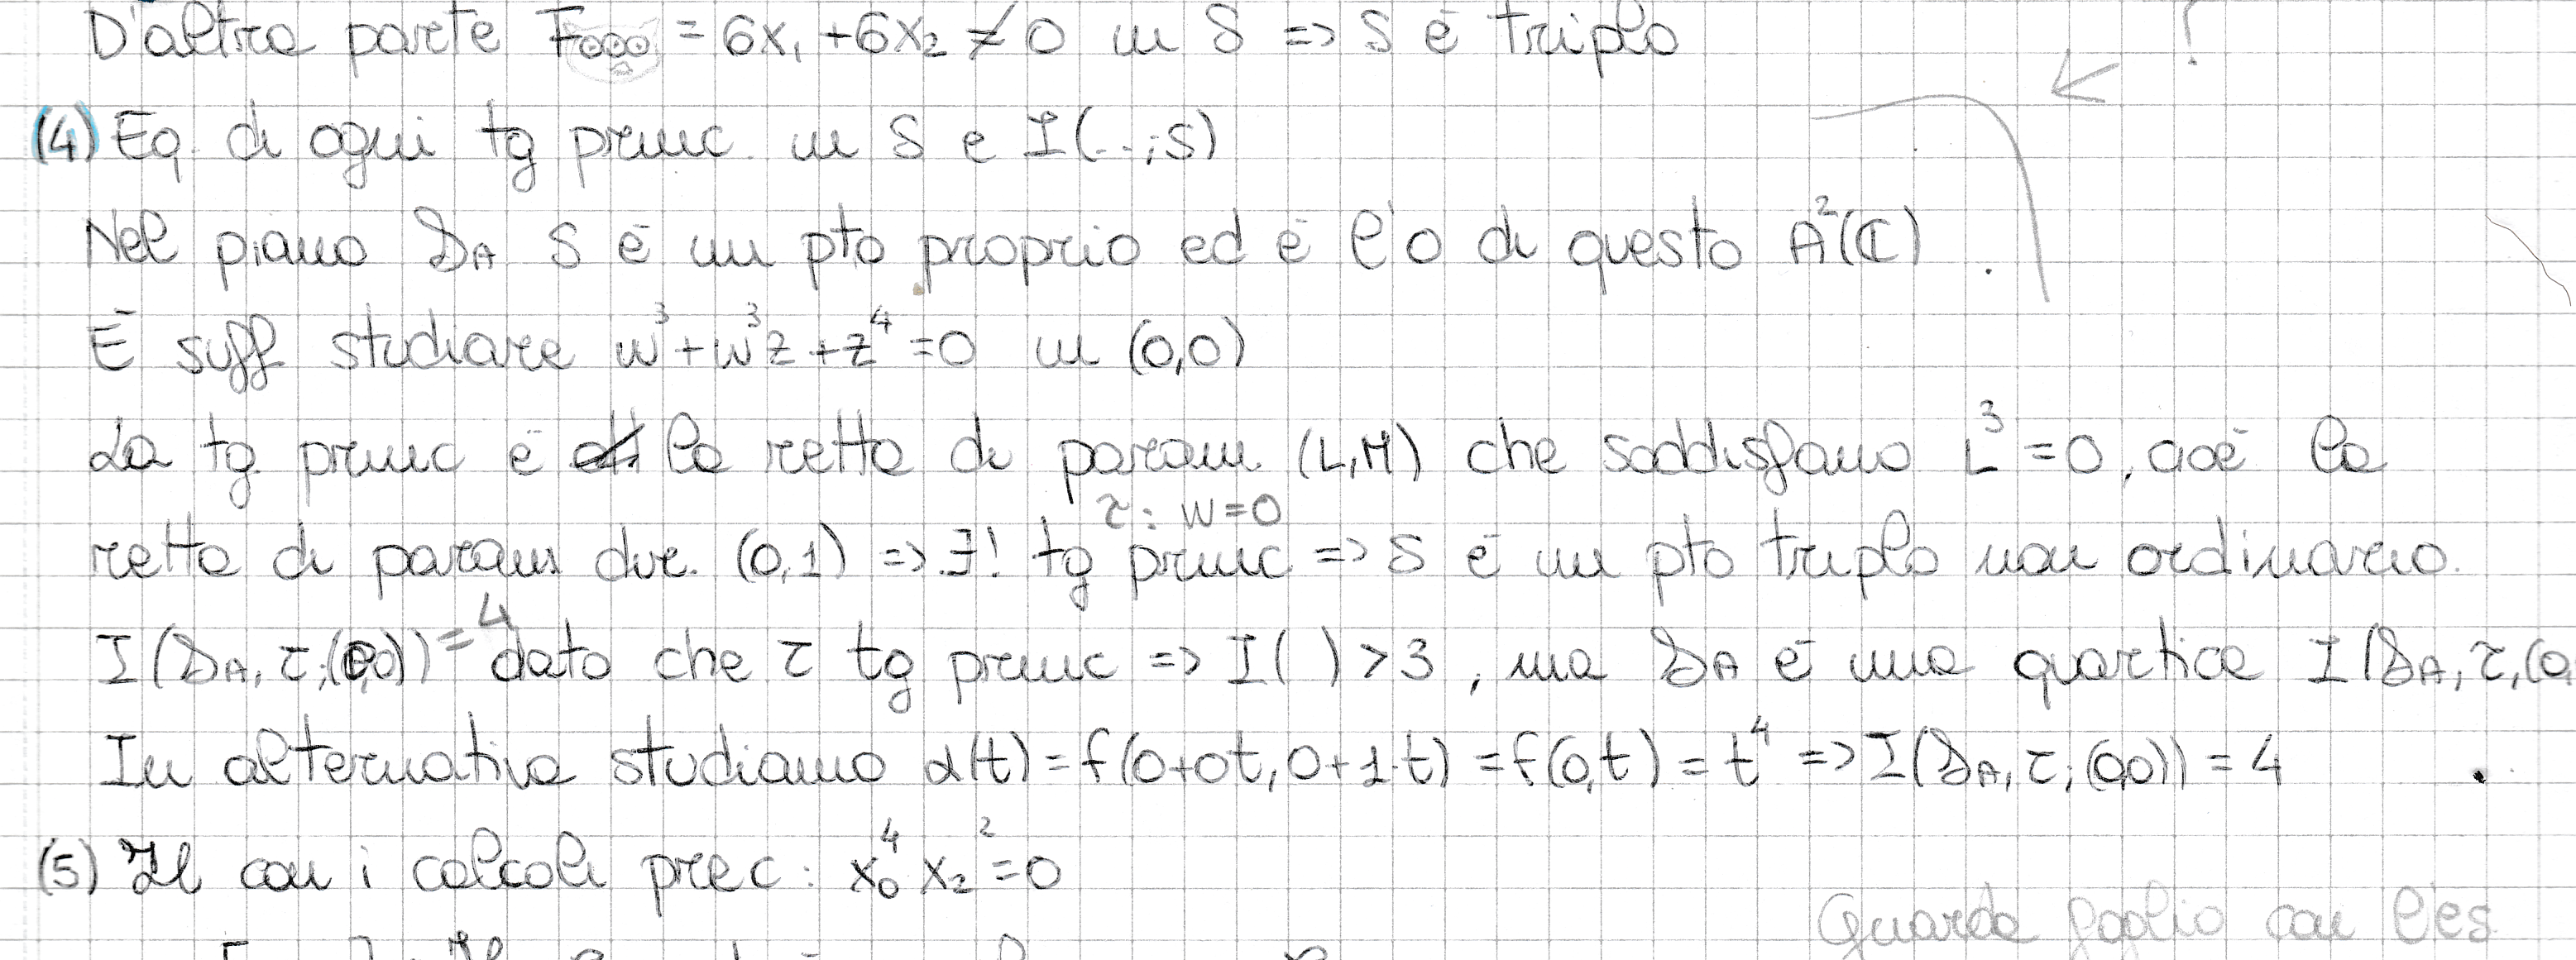 D'altra parte F₀₀₀ = 6x₁ + 6x₂ ≠ 0 in S => S è triplo
(4) Eq. di ogni tg princ. in S e I(..;S)
Nel piano 𝒟A S è un pto proprio ed è l'O di questo A²(ℂ)
È suff studiare w³+w³z+z⁴=0 in (0,0)
La tg princ è la retta di param (L,M) che soddisfano L³=0, cioè la
τ: w=0
retta di param dir. (0,1) => ∃! tg princ => S è un pto triplo non ordinario.
I(𝒟A, τ;(0,0))=4 dato che τ tg princ => I( ) > 3, ma 𝒟A è una quartica I(𝒟A, τ,(0,
In alternativa studiamo α(t) = f(0+0t, 0+1·t) = f(0,t) = t⁴ => I(𝒟A, τ; (0,0)) = 4
(5) H con i calcoli prec: x₀⁴ x₂² = 0
Guarda foglio con l'es